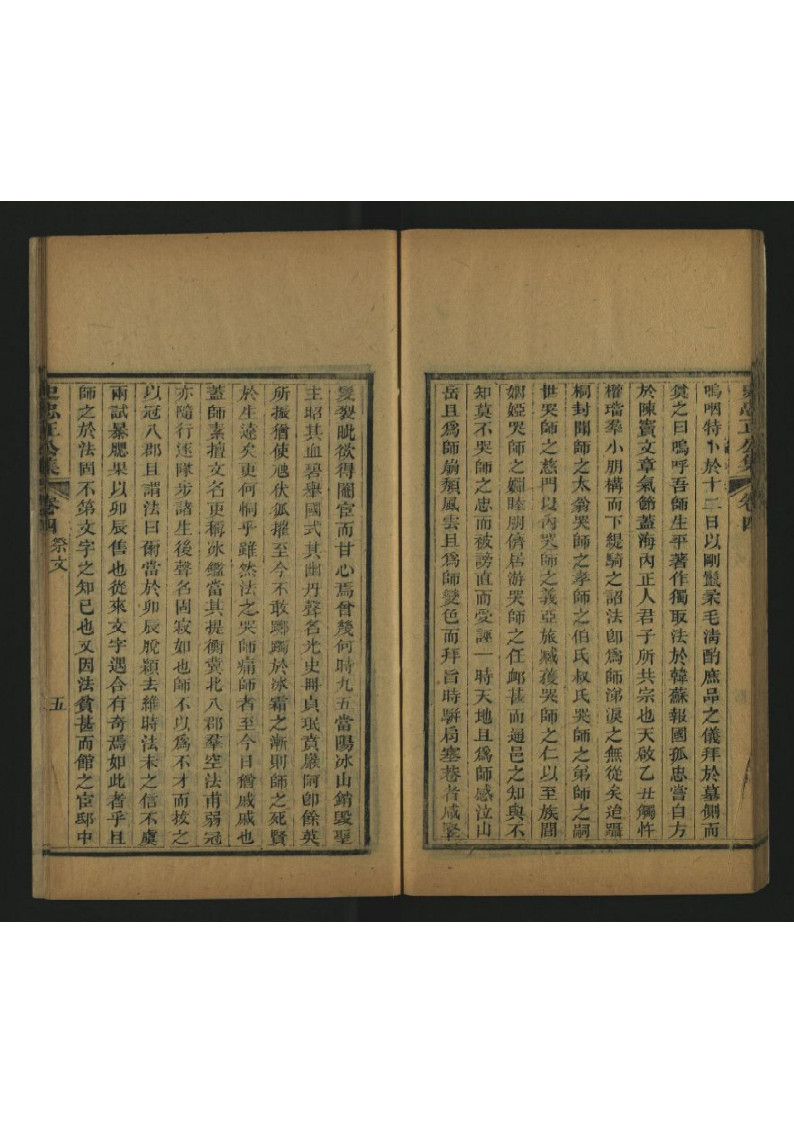 嗚咽特卜於十二日以剛鬣柔毛淸酌庶品之儀拜於墓側而
奠之曰嗚呼吾師生平著作獨取法於韓蘇報國孤忠嘗自方
於陳竇文章氣節蓋海內正人君子所共宗也天啟乙丑觸忤
權璫羣小朋構而下緹騎之詔法卽爲師涕淚之無從矣迨躡
桐封聞師之太翁哭師之孝師之伯氏叔氏哭師之弟師之嗣
世哭師之慈門以內哭師之義亞旅臧獲哭師之仁以至族閭
姻婭哭師之婣睦朋儕居游哭師之任卹甚而通邑之知與不
知莫不哭師之忠而被謗直而受誣一時天地且爲師感泣山
岳且爲師崩頹風雲且爲師變色而拜旨時駢肩塞巷者咸擊
髮裂眦欲得閹宦而甘心焉曾幾何時九五當陽冰山銷毀聖
主昭其血碧舉國式其幽丹聲名光史冊貞珉賁巖阿卽餘英
所振猶使虺伏狐摧至今不敢躑躅於冰霜之漸則師之死賢
於生遠矣更何恫乎雖然法之哭師痛師者至今日猶戚戚也
蓋師素擅文名更稱冰鑑當其提衡冀北八郡羣空法甫弱冠
亦隨行逐隊步諸生後聲名固寂如也師不以爲不才而拔之
以冠八郡且謂法曰衛當於卯辰脫穎去維時法未之信不虞
兩試暴腮果以卯辰售也從來文字遇合有奇焉如此者乎且
師之於法固不第文字之知已也又因法貧甚而館之宦邸中
史忠正公集
卷四
祭文
五